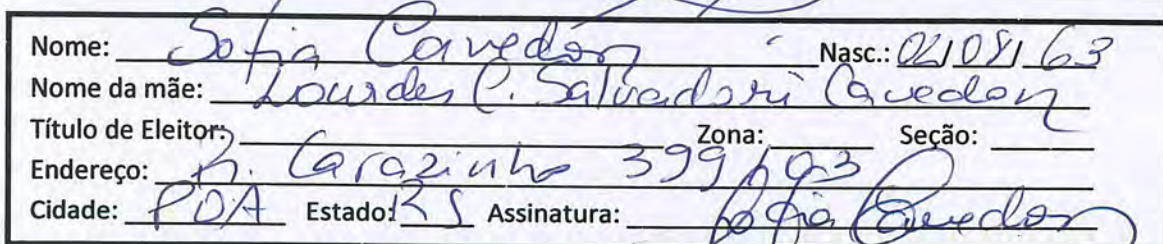 Nome: Sofia Cavedon Nasc.: 02/08/63
Nome da mãe: Lourdes C. Salvadori Cavedon
Título de Eleitor: Zona: Seção:
Endereço: R. Carazinho 399/03
Cidade: POA Estado: RS Assinatura: Sofia Cavedon